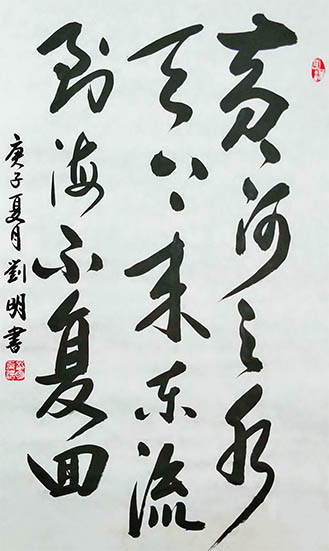 黄河之水
天上来东流
到海不复回
庚子夏月劉明書